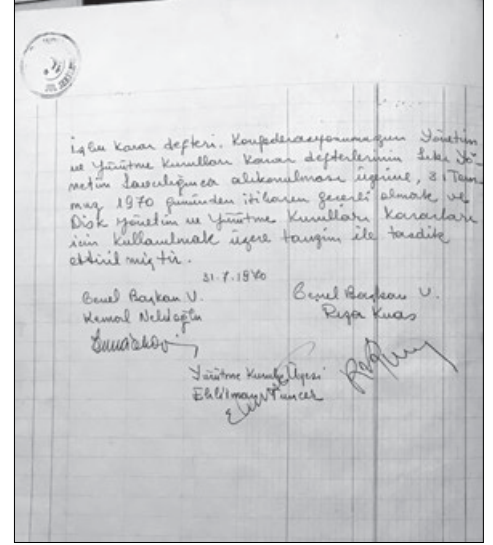 İşbu karar defteri. Konfederasyonumuzun Yönetim
ve Yürütme Kurulları Karar defterlerinin Sıkı Yö-
netim Savcılığınca alıkonulması üzerine, 31 Tem-
muz 1970 gününden itibaren geçerli olmak ve
Disk Yönetim ve Yürütme Kurulları Kararları
için kullanılmak üzere tanzim ile tasdik
ettirilmiştir.
31.7.1970
Genel Başkan V.
Kemal Nebioğlu
Genel Başkan V.
Rıza Kuas
Yürütme Kurulu Üyesi
Ehliiman Tuncer